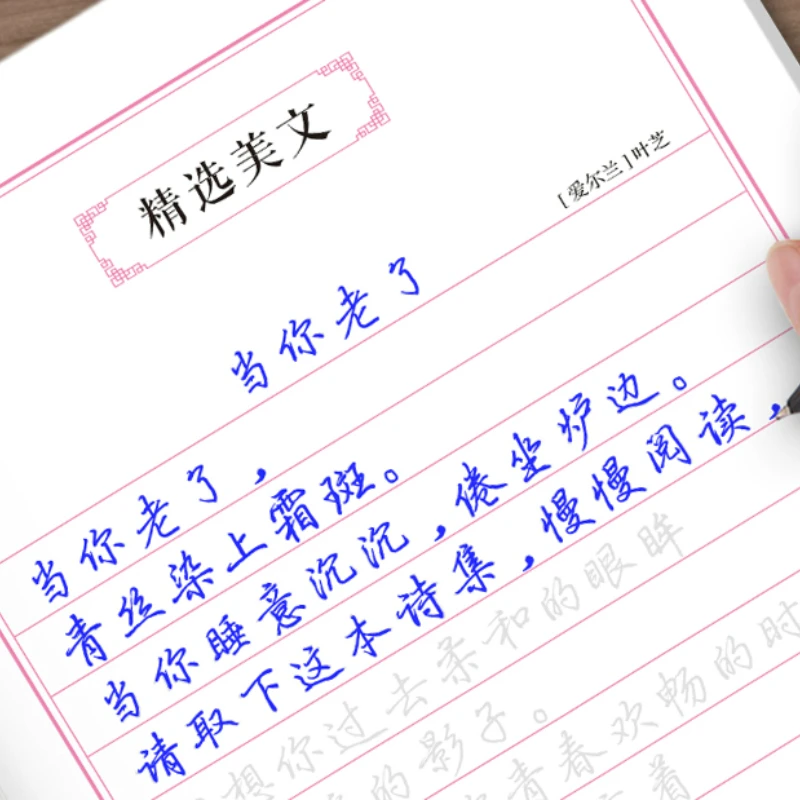 精选美文
[爱尔兰]叶芝
当你老了
当你老了，
青丝染上霜斑。
当你睡意沉沉，倦坐炉边。
请取下这本诗集，慢慢阅读，
想你过去柔和的眼眸
的影子。
青春欢畅的时
着